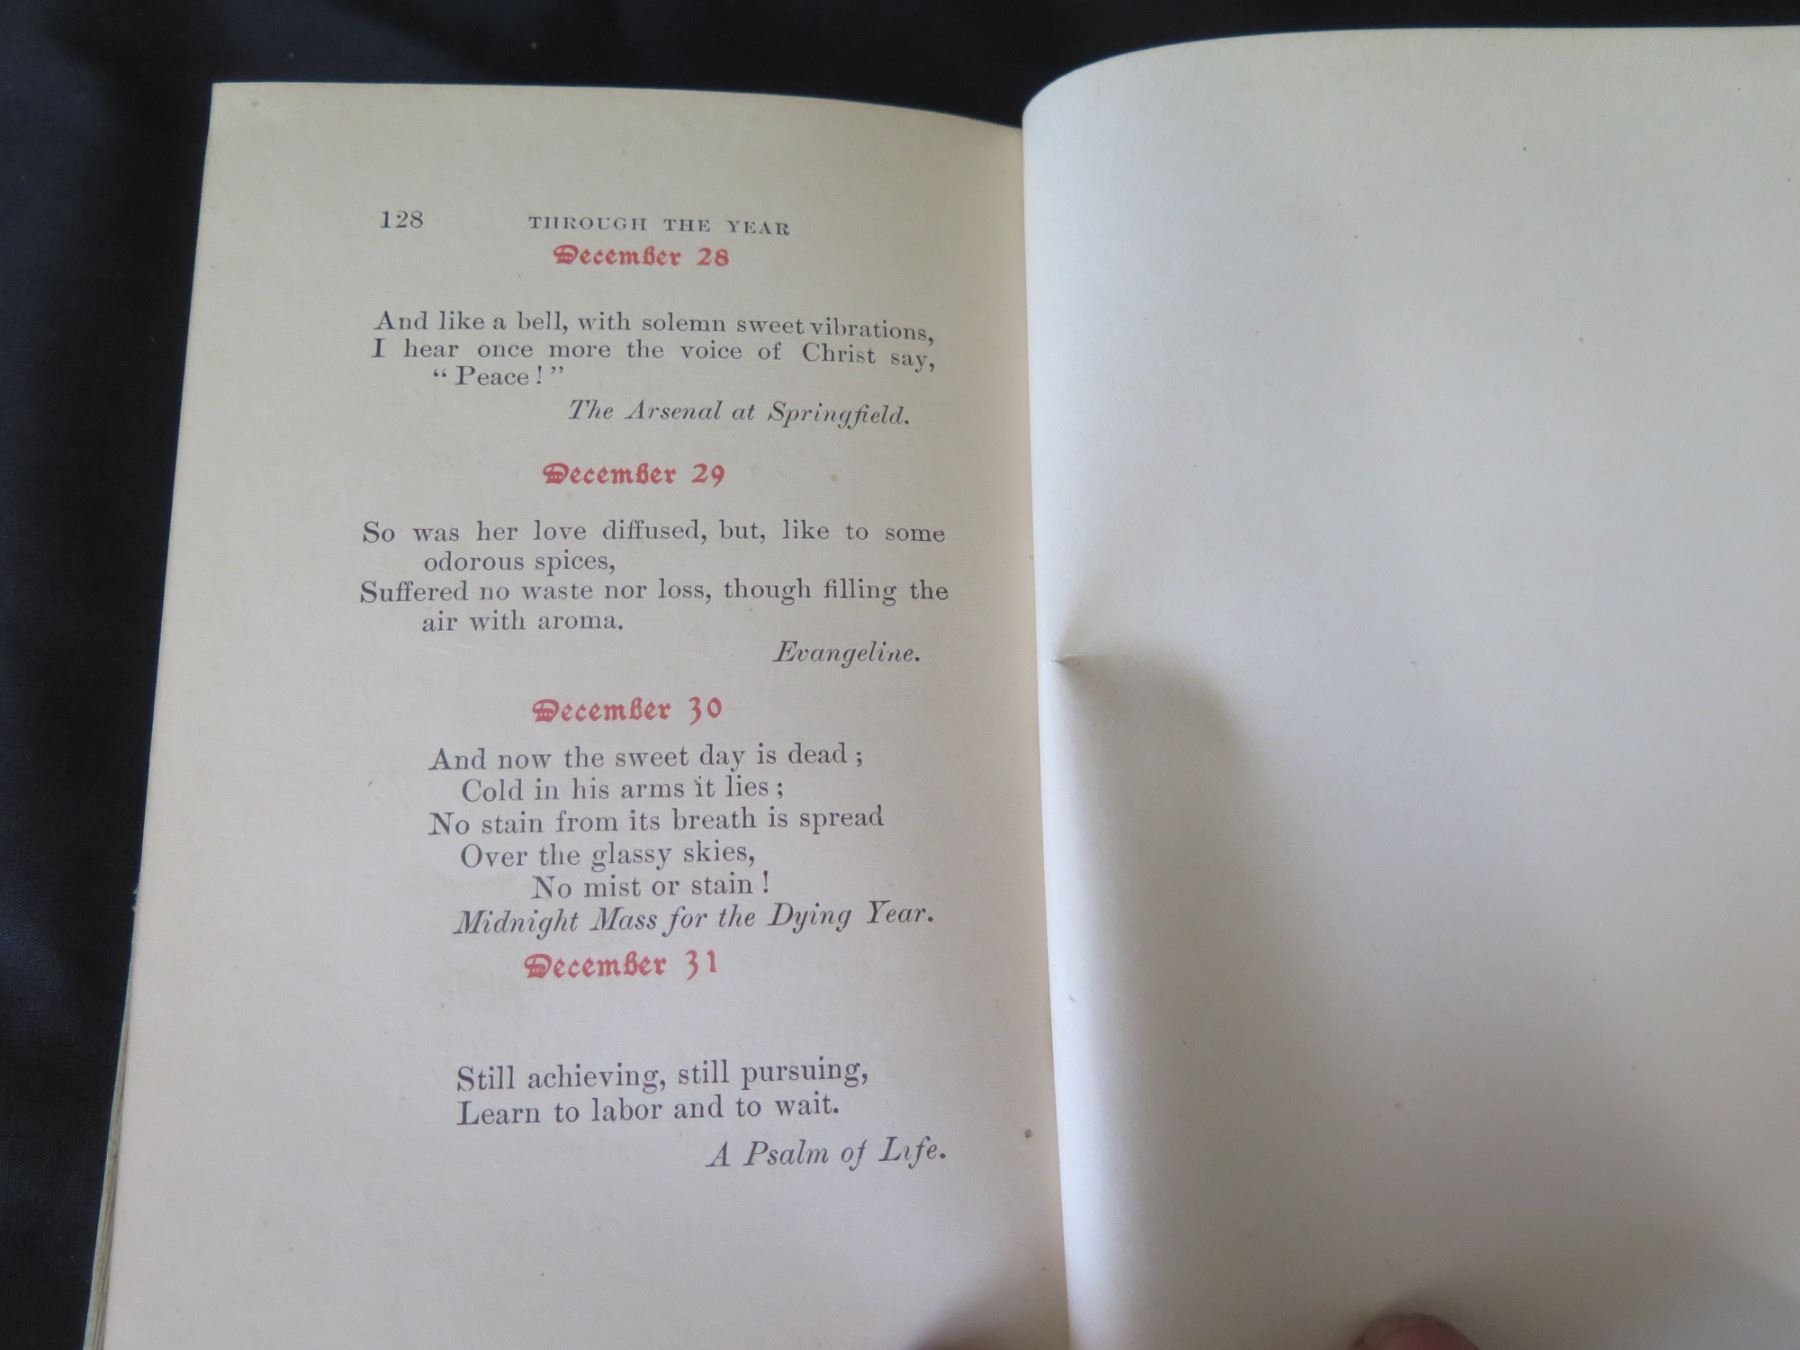 128 THROUGH THE YEAR
December 28
And like a bell, with solemn sweet vibrations,
I hear once more the voice of Christ say,
“Peace!”
The Arsenal at Springfield.
December 29
So was her love diffused, but, like to some
odorous spices,
Suffered no waste nor loss, though filling the
air with aroma.
Evangeline.
December 30
And now the sweet day is dead;
Cold in his arms it lies;
No stain from its breath is spread
Over the glassy skies,
No mist or stain!
Midnight Mass for the Dying Year.
December 31
Still achieving, still pursuing,
Learn to labor and to wait.
A Psalm of Life.